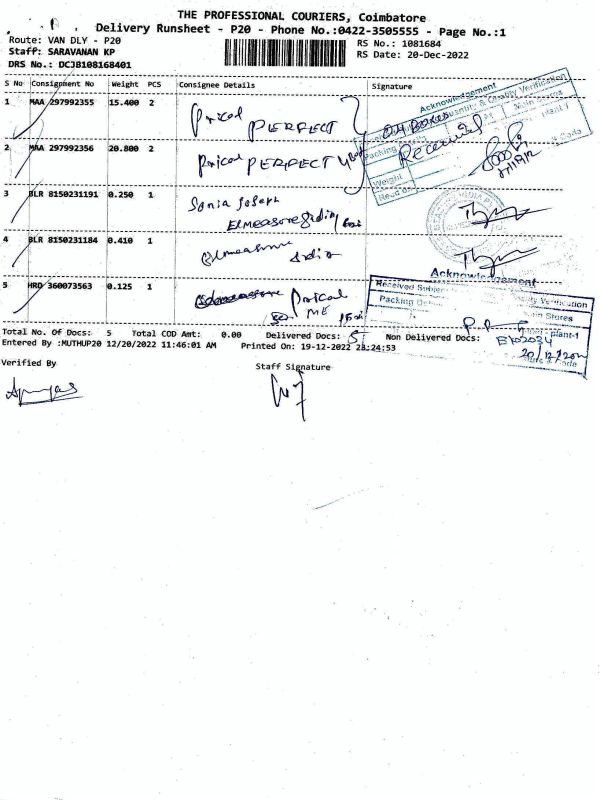 THE PROFESSIONAL COURIERS, Coimbatore
Delivery Runsheet - P20 - Phone No.:0422-3505555 - Page No.:1
Route: VAN DLY - P20
RS No.: 1081684
Staff: SARAVANAN KP
RS Date: 20-Dec-2022
DRS No.: DCJB108168401
S No Consignment No Weight PCS Consignee Details Signature
1 MAA 297992355 15.400 2 Pricol PERFECT
04 Boxes Received
2 MAA 297992356 20.800 2 Pricol PERFECT
3 BLR 8150231191 0.250 1 Sonia Joseph
4 BLR 8150231184 0.410 1
5 HRD 360073563 0.125 1 Pricol
Acknowledgement
Quantity & Quality Verification
Main Stores
Plant-1
Packing
Weight
Acknowledgement
Received Subject
Quality Verification
Packing
Main Stores
Plant-1
20/12/2022
Total No. Of Docs: 5 Total COD Amt: 0.00 Delivered Docs: 5 Non Delivered Docs:
Entered By :MUTHUP20 12/20/2022 11:46:01 AM Printed On: 19-12-2022 23:24:53
Verified By
Staff Signature